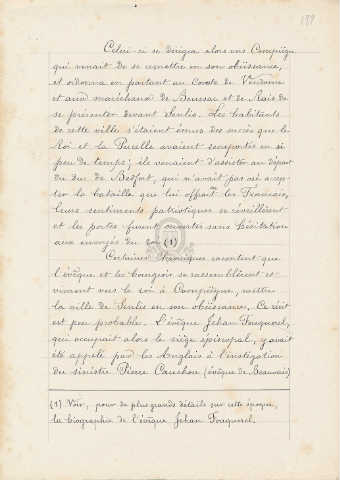 189
Celui-ci se dirigea alors vers Compiègne
qui venait de se remettre en son obéissance,
et ordonna en partant au Comte de Vendome
et aux maréchaux de Boussac et de Rais de
se présenter devant Senlis. Les habitants
de cette ville s'étaient émus des succès que le
Roi et la Pucelle avaient remportés en si
peu de temps; ils venaient d'assister au départ
du duc de Bedfort, qui n'avait pas osé accep-
ter la bataille que lui offraient les Français,
leurs sentiments patriotiques se réveillèrent
et les portes furent ouvertes sans hésitation
aux envoyés du roi (1)
Certaines chroniques racontent que
l'évêque et les bourgeois se rassemblèrent et
vinrent vers le roi à Compiègne, mettre
la ville de Senlis en son obéissance. Ce récit
est peu probable. L'évêque Jehan Fouquerel,
qui occupait alors le siège épiscopal, y avait
été appelé par les Anglais à l'instigation
du sinistre Pierre Cauchon (évêque de Beauvais)
(1) Voir, pour de plus grands détails sur cette époque,
la biographie de l'évêque Jehan Fouquerel.